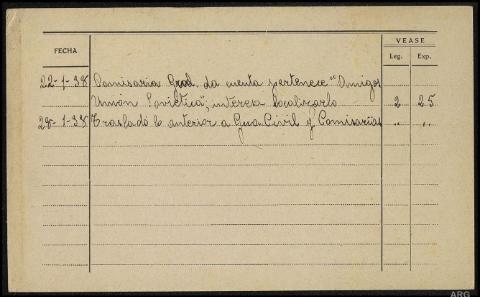 FECHA
VEASE
Leg. Exp.
22-1-38 Comisaria Gral. da cuenta pertenece "Amigos
Union Sovietica", interesa localizarlo 2 25
28-1-38 Traslado lo anterior a Gua Civil y Comisarias " "
ARG